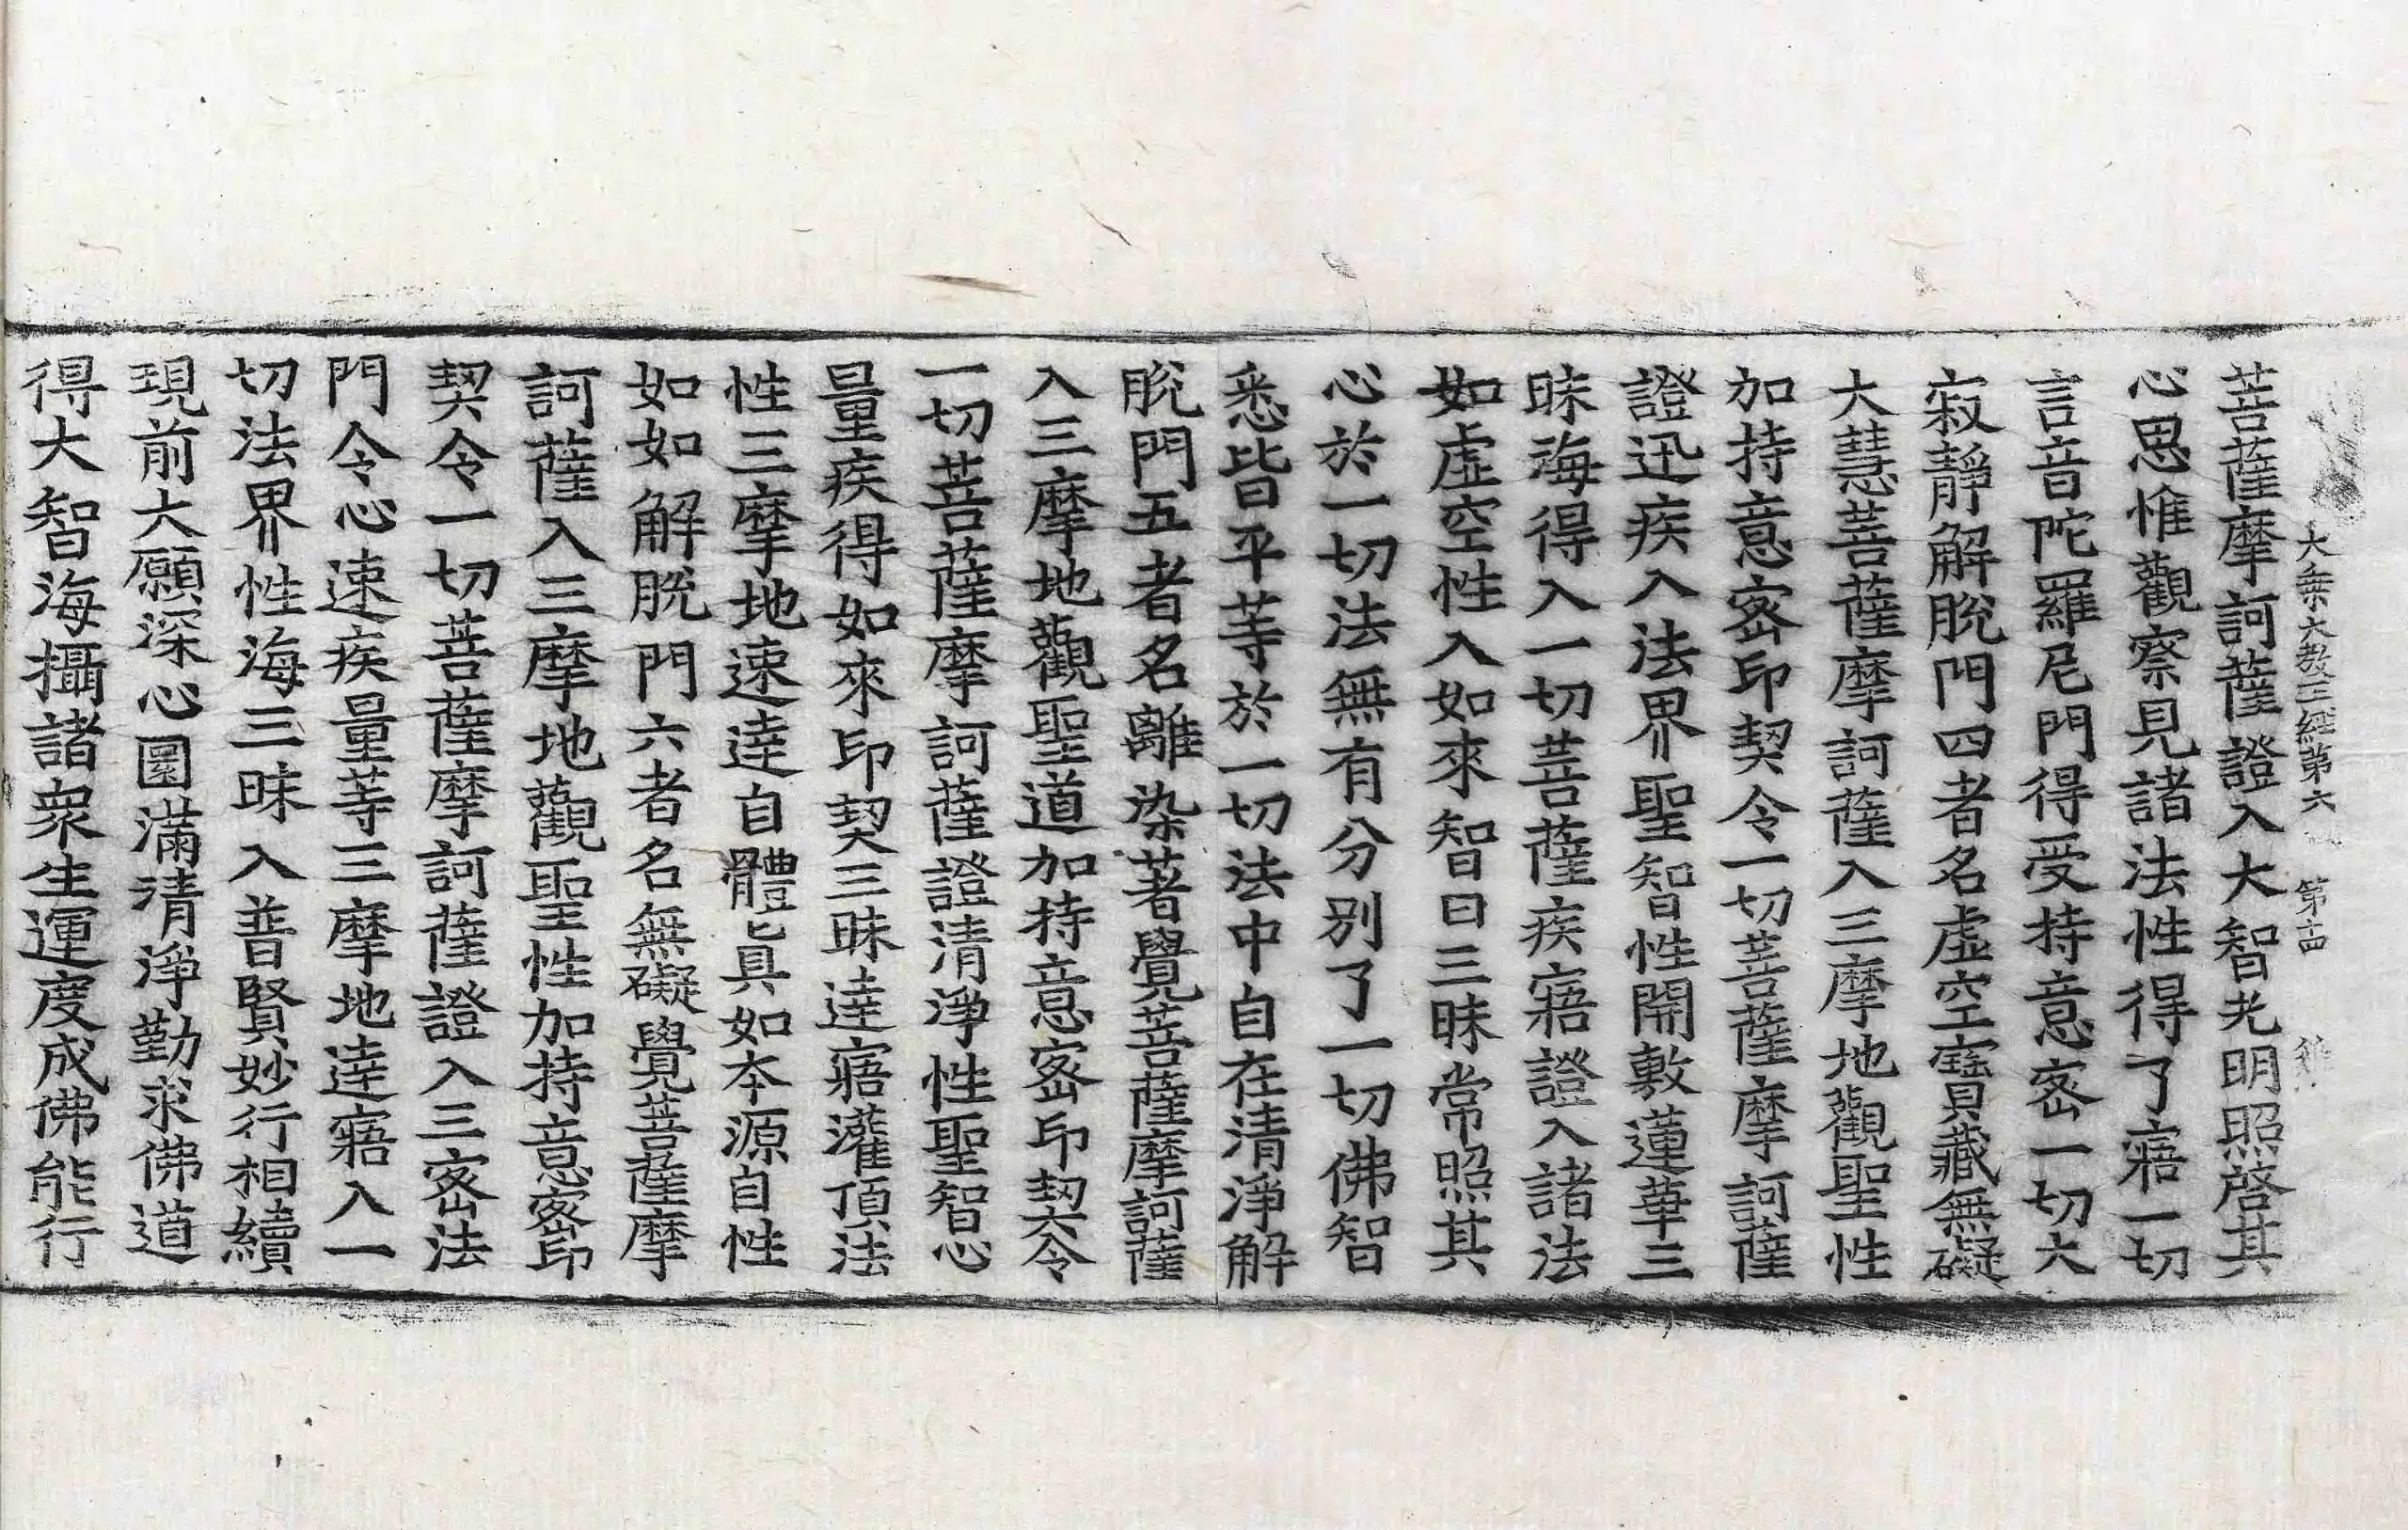 大乗大教王經第六 第十四
菩薩摩訶薩證入大智光明照啓其
心思惟觀察見諸法性得了寤一切
言音陀羅尼門得受持意密一切大
寂靜解脫門四者名虛空寶藏無礙
大慧菩薩摩訶薩入三摩地觀聖性
加持意密印契令一切菩薩摩訶薩
證迅疾入法界聖智性開敷蓮華三
昧海得入一切菩薩疾寤證入諸法
如虛空性入如來智日三昧常照其
心於一切法無有分別了一切佛智
悉皆平等於一切法中自在清淨解
脫門五者名離染著覺菩薩摩訶薩
入三摩地觀聖道加持意密印契令
一切菩薩摩訶薩證清淨性聖智心
量疾得如來印契三昧達寤灌頂法
性三摩地速達自體具如本源自性
如如解脫門六者名無礙覺菩薩摩
訶薩入三摩地觀聖性加持意密印
契令一切菩薩摩訶薩證入三密法
門令心速疾量等三摩地達寤入一
切法界性海三昧入普賢妙行相續
現前大願深心圓滿清淨勤求佛道
得大智海攝諸衆生運度成佛能行